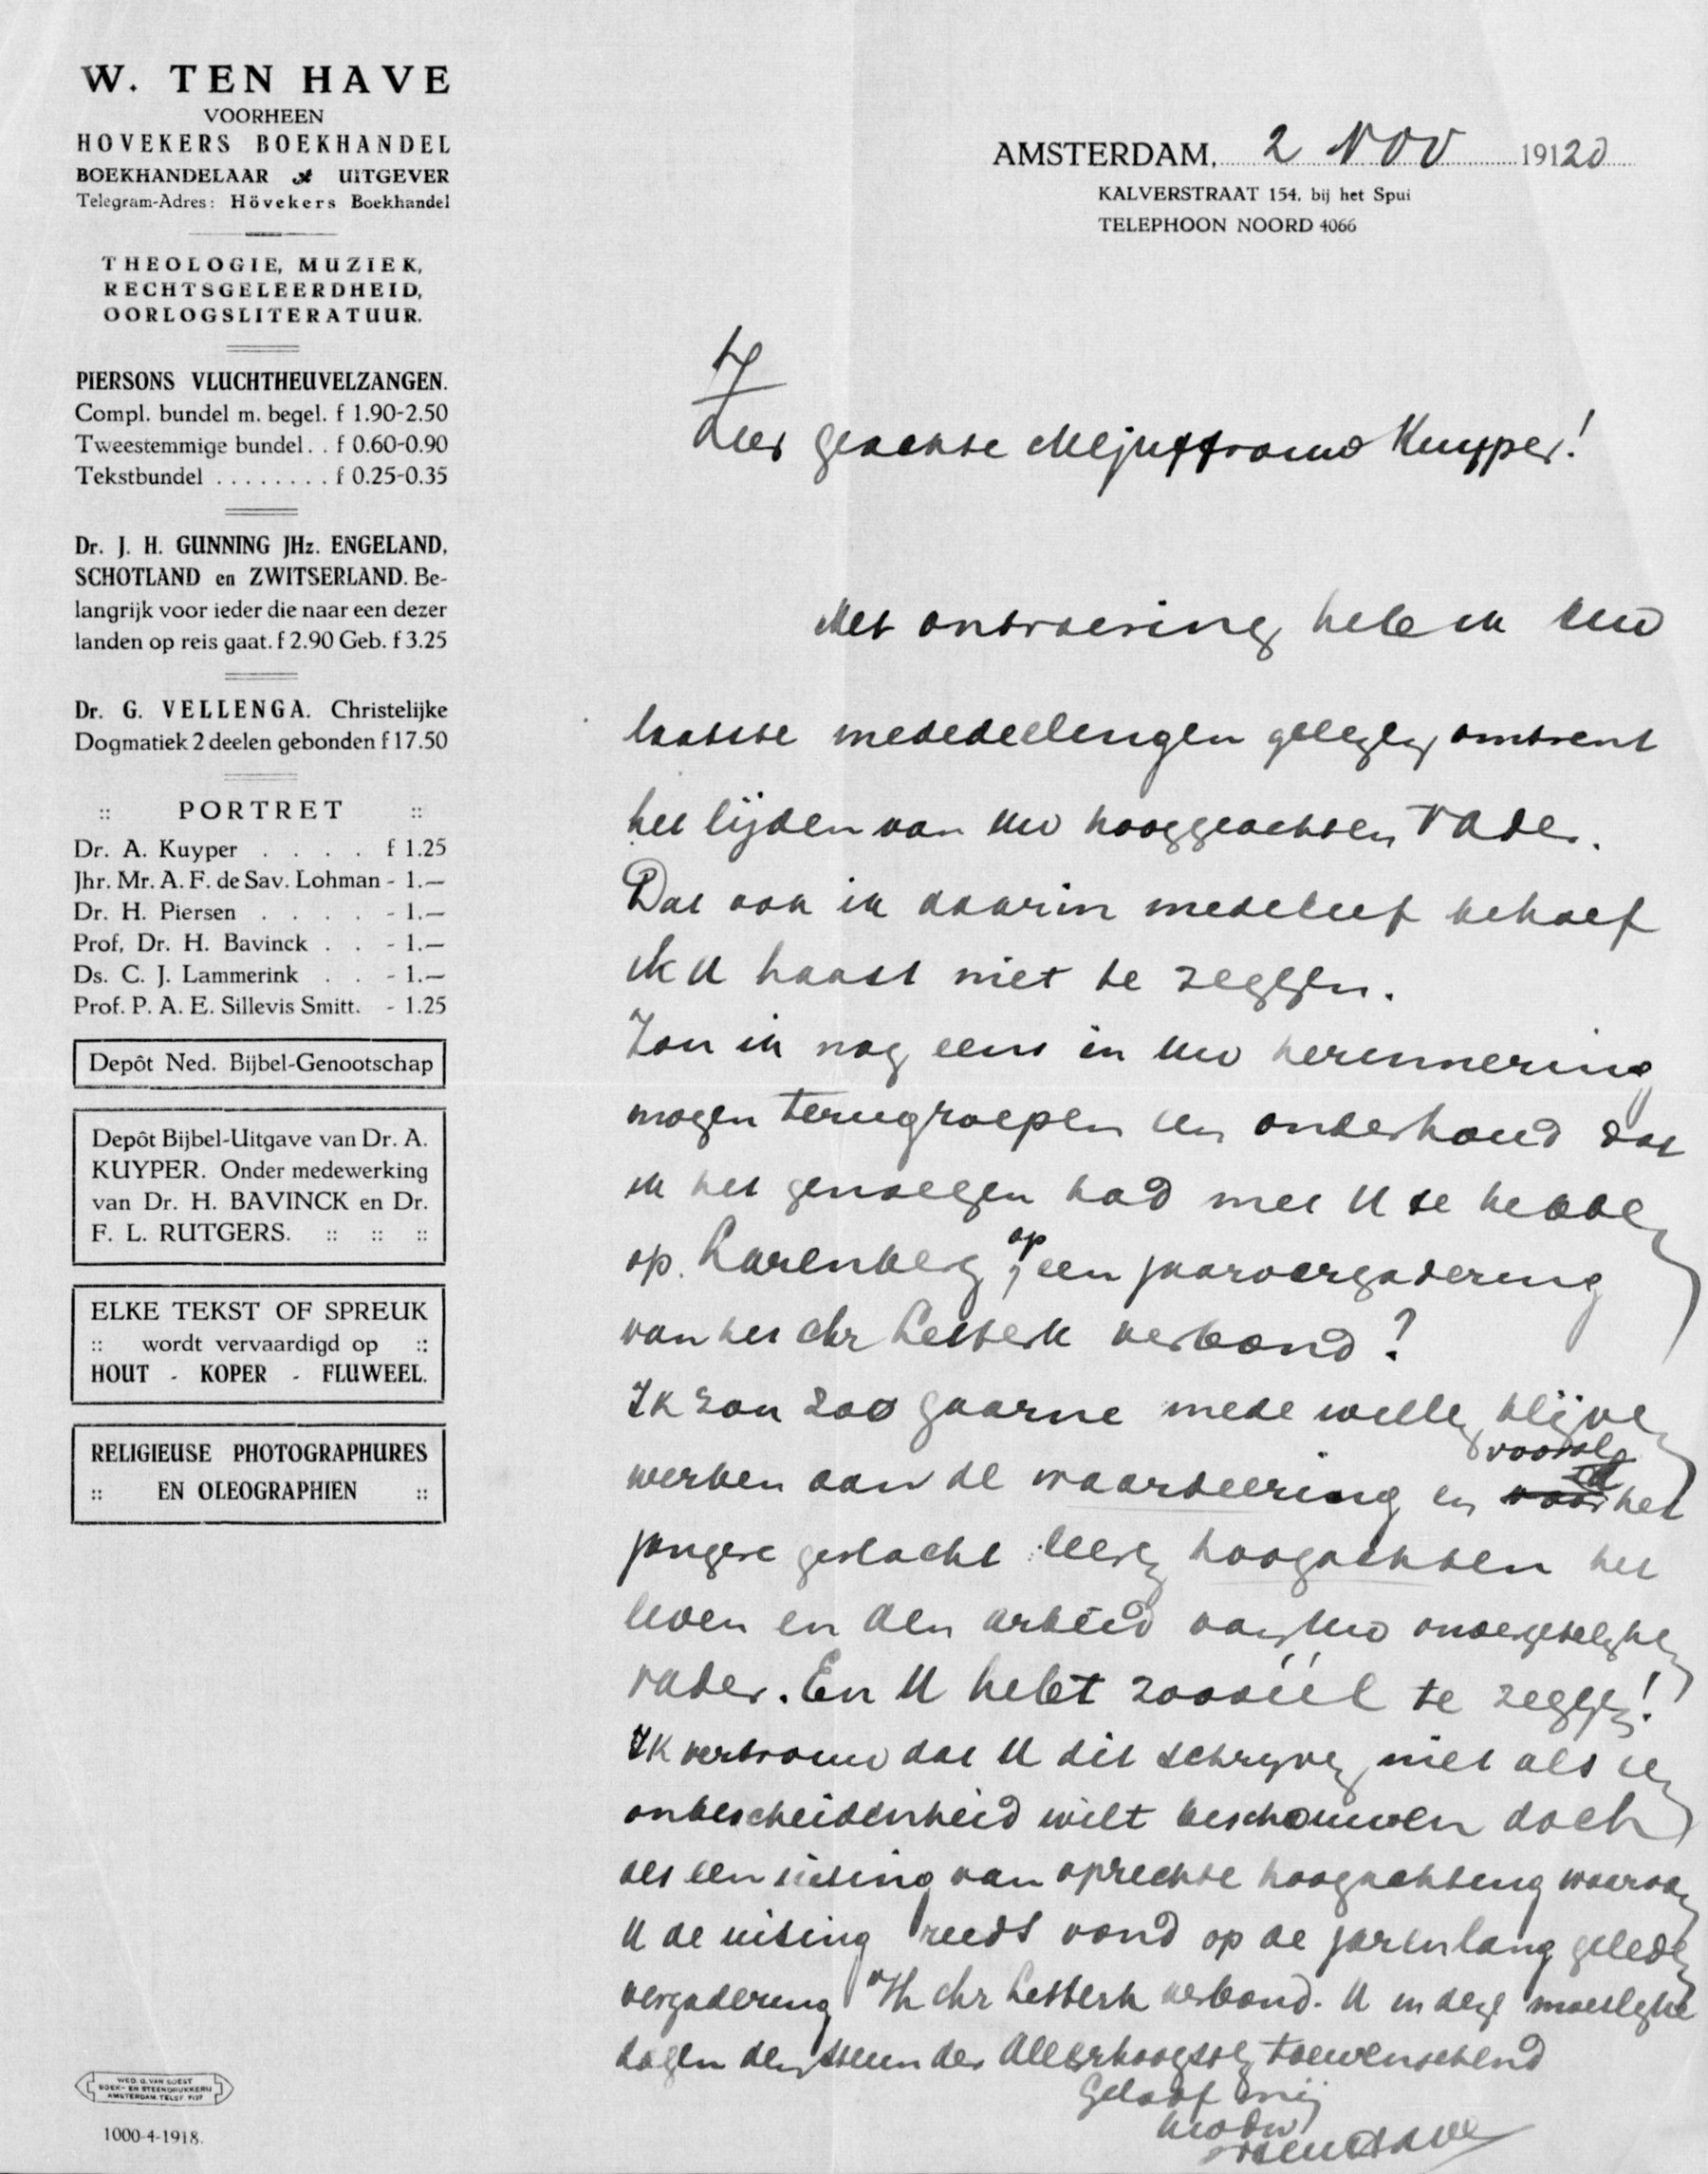 W. TEN HAVE
VOORHEEN
HOVEKERS BOEKHANDEL
BOEKHANDELAAR UITGEVER
Telegram-Adres: Hövekers Boekhandel
THEOLOGIE, MUZIEK,
RECHTSGELEERDHEID,
OORLOGSLITERATUUR.
PIERSONS VLUCHTHEUVELZANGEN.
Compl. bundel m. begel. f 1.90-2.50
Tweestemmige bundel. . f 0.60-0.90
Tekstbundel . . . . . . . . f 0.25-0.35
Dr. J. H. GUNNING JHz. ENGELAND,
SCHOTLAND en ZWITSERLAND. Be-
langrijk voor ieder die naar een dezer
landen op reis gaat. f 2.90 Geb. f 3.25
Dr. G. VELLENGA. Christelijke
Dogmatiek 2 deelen gebonden f 17.50
:: PORTRET ::
Dr. A. Kuyper . . . . f 1.25
Jhr. Mr. A. F. de Sav. Lohman - 1.—
Dr. H. Piersen . . . . - 1.—
Prof, Dr. H. Bavinck . . - 1.—
Ds. C. J. Lammerink . . - 1.—
Prof. P. A. E. Sillevis Smitt. - 1.25
Depôt Ned. Bijbel-Genootschap
Depôt Bijbel-Uitgave van Dr. A.
KUYPER. Onder medewerking
van Dr. H. BAVINCK en Dr.
F. L. RUTGERS. :: :: ::
ELKE TEKST OF SPREUK
:: wordt vervaardigd op ::
HOUT - KOPER - FLUWEEL.
RELIGIEUSE PHOTOGRAPHURES
:: EN OLEOGRAPHIEN ::
WED. G. VAN SOEST
BOEK- EN STEENDRUKKERIJ
1000-4-1918.
AMSTERDAM, 2 NOV 19120
KALVERSTRAAT 154, bij het Spui
TELEPHOON NOORD 4066
Zeer geachte Mejuffrouw Kuyper!
Met ontroering heb ik Uw
laatste mededeelingen gelezen omtrent
het lijden van Uw hooggeachten Vader.
Dat ook ik daarin medeleef behoef
ik U haast niet te zeggen.
Zou ik nog eens in Uw herinnering
mogen terugroepen een onderhoud dat
ik het genoegen had met U te hebben
op Larenberg, op een jaarvergadering
van het chr Letterk verbond?
Ik zou zoo gaarne mede willen blijven
werken aan de waardeering en voor vooral het
jongere geslacht leeren hoogachten het
leven en den arbeid van Uw onvergetelijken
vader. En U hebt zoovéél te zeggen!
Ik vertrouw dat U dit schrijven niet als een
onbescheidenheid wilt beschouwen doch
als een uiting van oprechte hoogachting waarvan
U de uiting reeds vond op de jarenlang geleden
vergadering v/h chr Letterk verbond. U in deze moeilijke
dagen den steun des Allerhoogsten toewenschend
Geloof mij
Uwdw
WtenHave